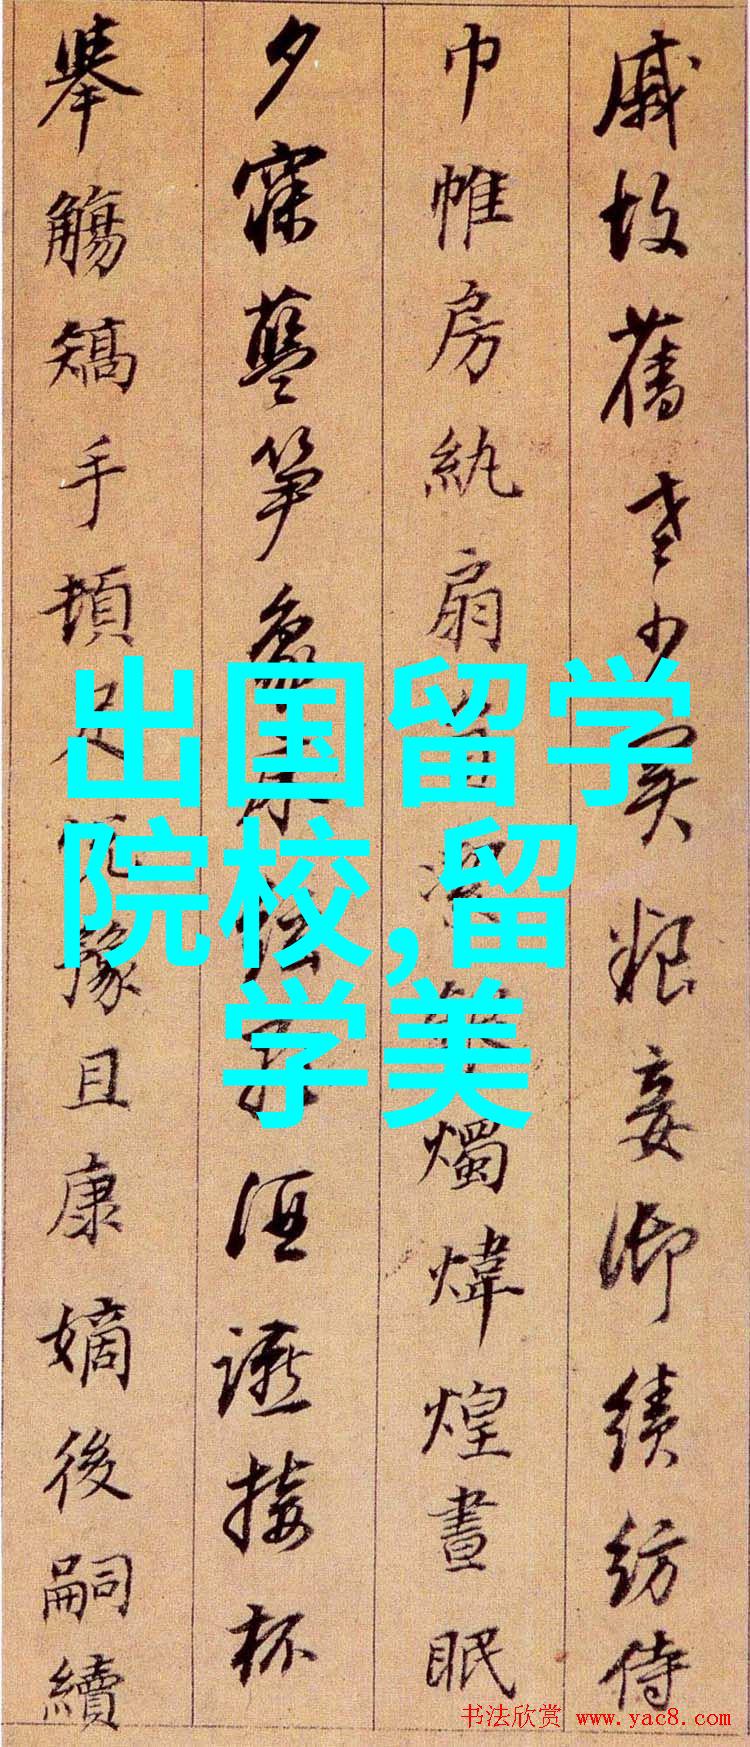 戚故舊老少異粮妾御績紡侍
巾帷房紈扇燭煒煌晝眠
夕寐藍笋象床酒讌接杯
舉觴矯手頓足悅豫且康嫡後嗣續
出国留学
院校,留
学美
书法欣赏 www.yac8.com